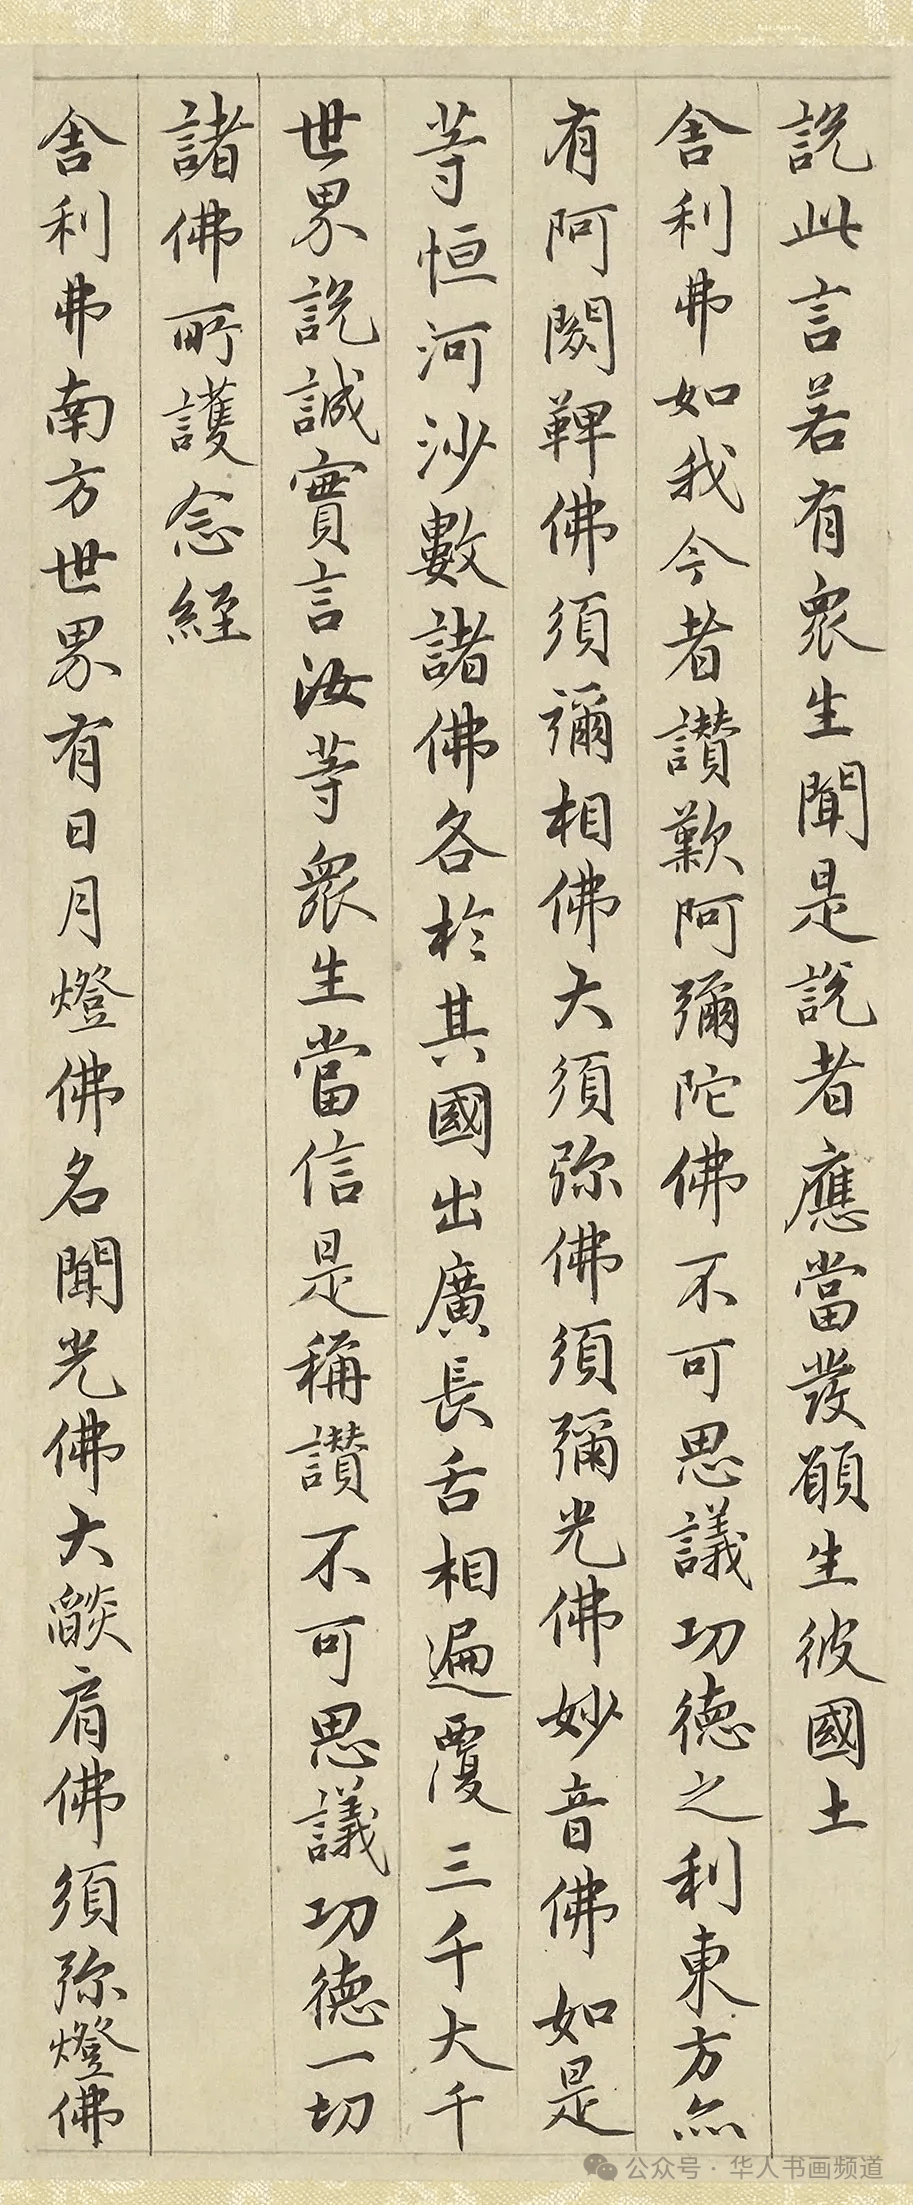 說此言若有眾生聞是說者應當發願生彼國土
舍利弗如我今者讚歎阿彌陀佛不可思議功德之利東方亦
有阿閦鞞佛須彌相佛大須弥佛須彌光佛妙音佛如是
等恒河沙數諸佛各於其國出廣長舌相遍覆三千大千
世界說誠實言汝等眾生當信是稱讚不可思議功德一切
諸佛所護念經
舍利弗南方世界有日月燈佛名聞光佛大燄肩佛須弥燈佛
公众号·华人书画频道